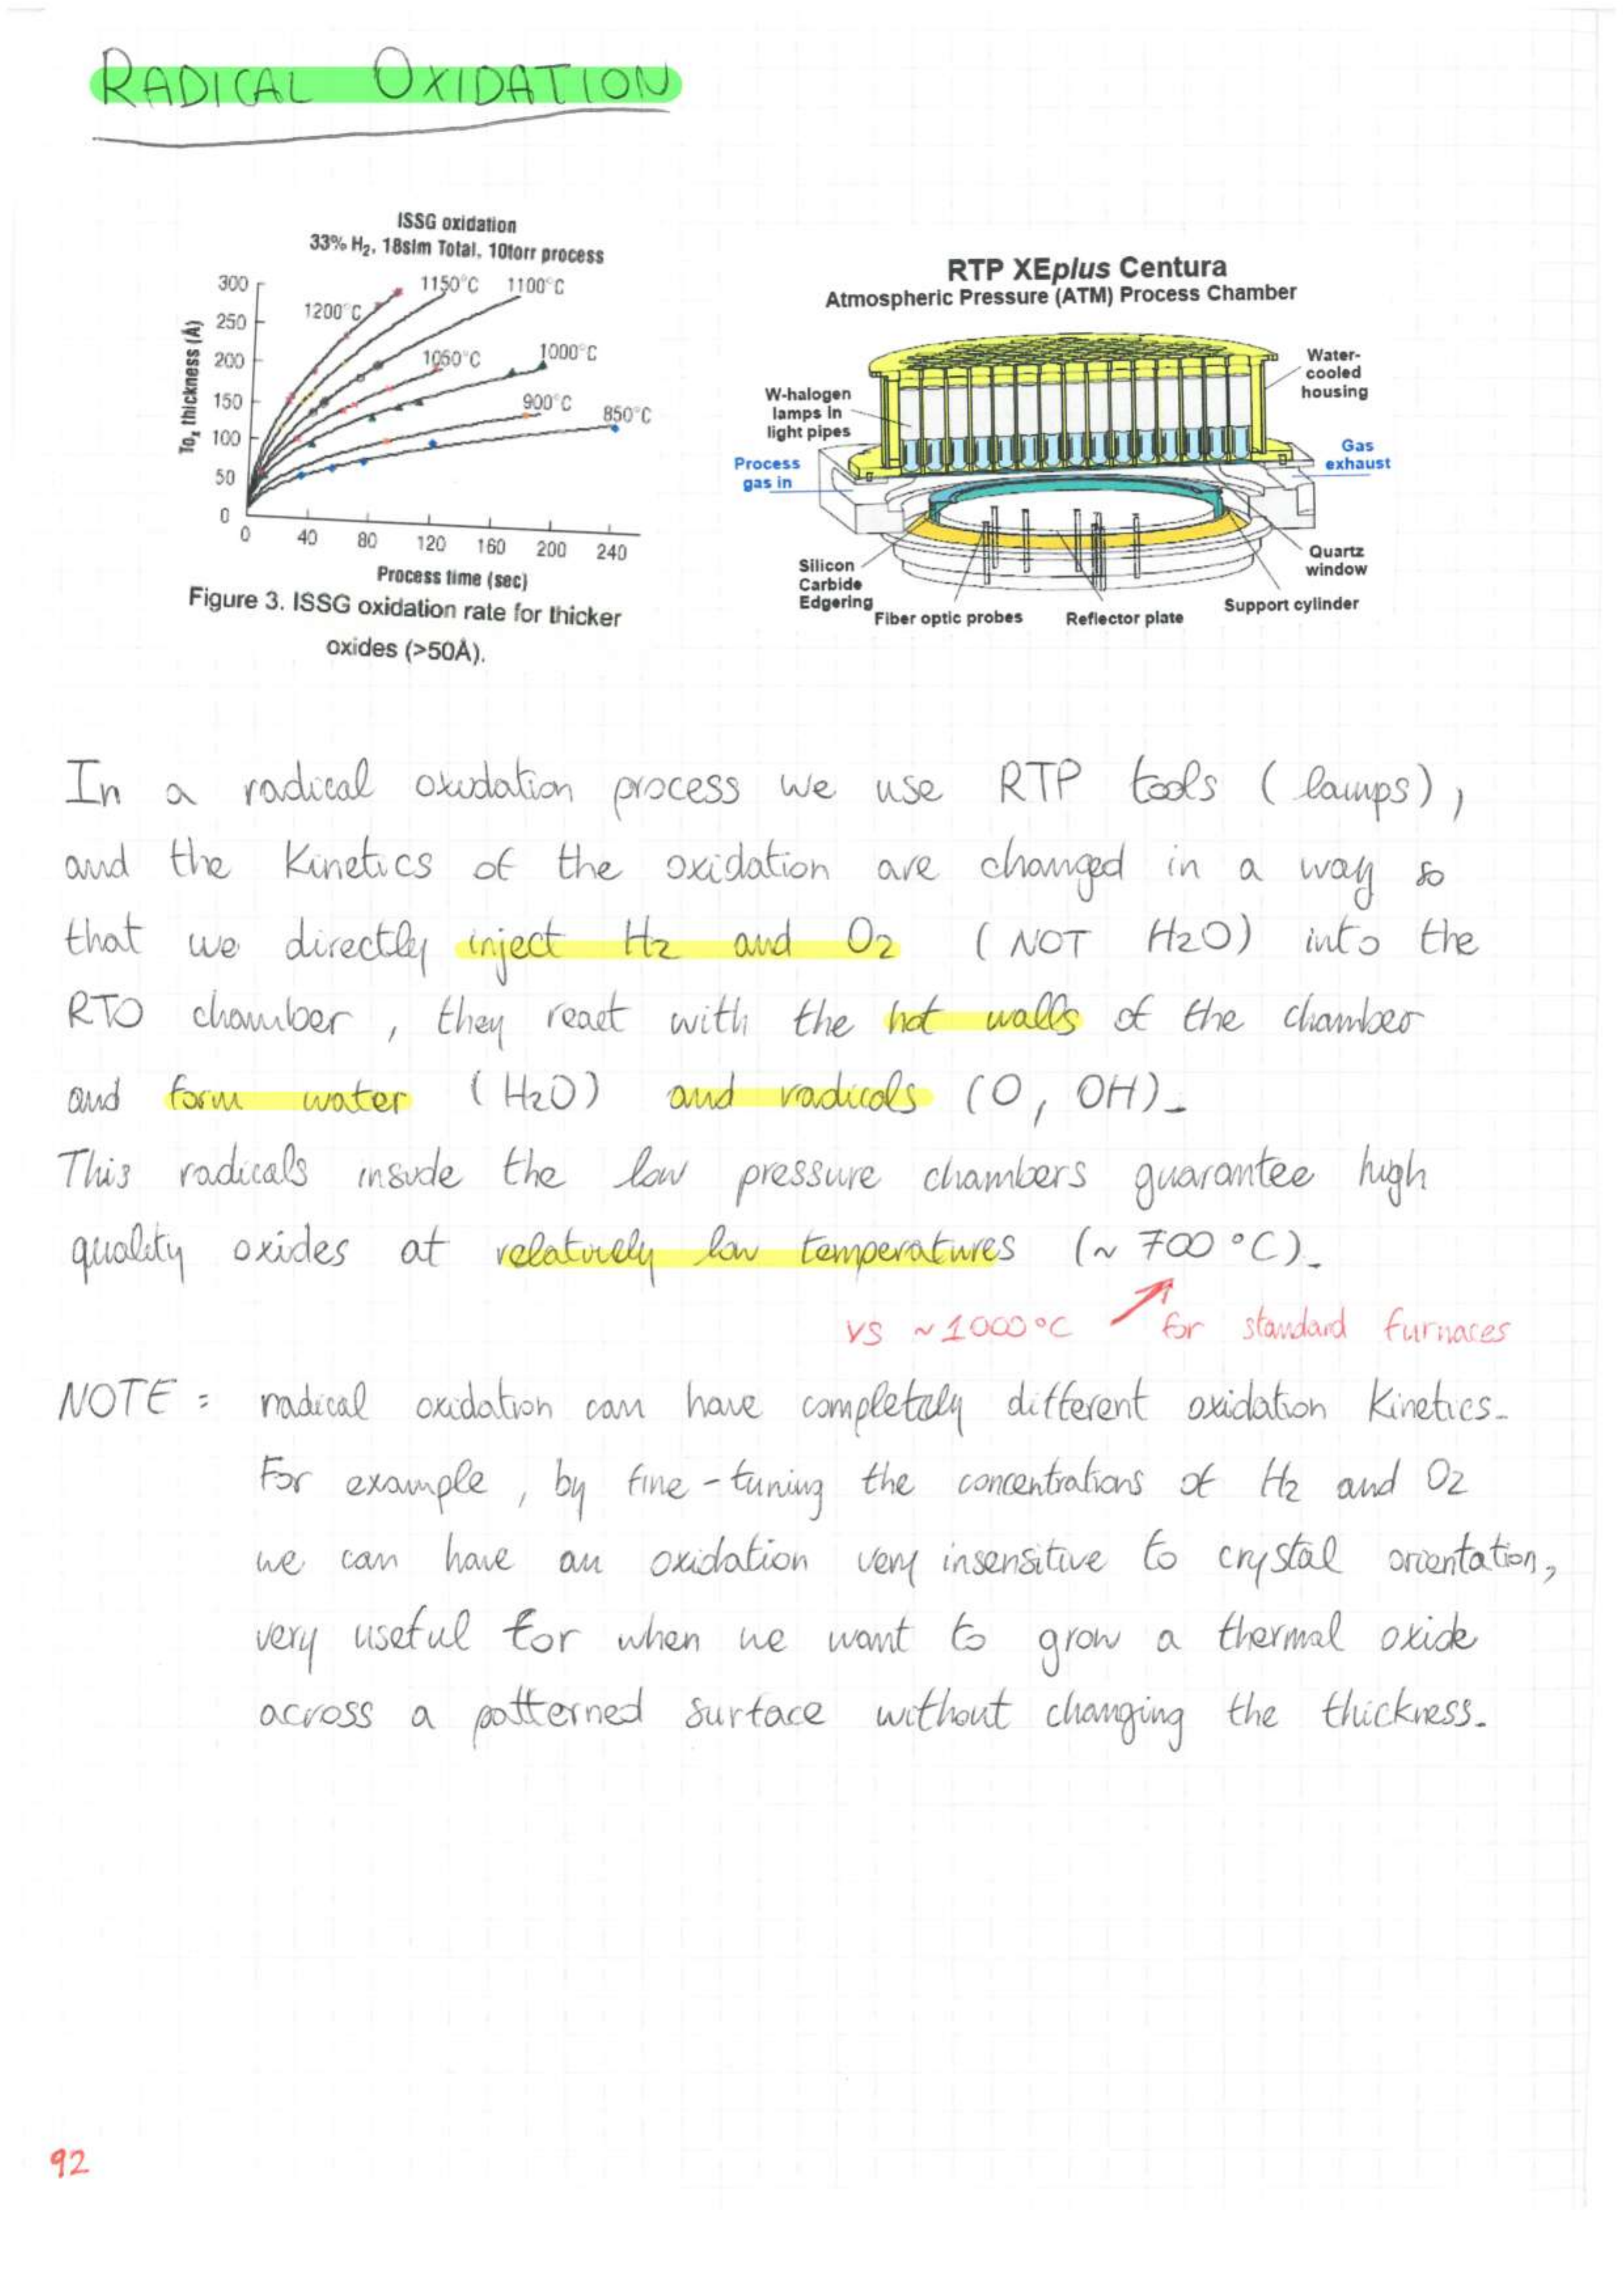 RADICAL OXIDATION
ISSG oxidation
33% H₂, 18slm Total, 10torr process
300
250
200
150
100
50
0
Toₓ thickness (Å)
1200°C
1150°C
1100°C
1050°C
1000°C
900°C
850°C
0 40 80 120 160 200 240
Process time (sec)
Figure 3. ISSG oxidation rate for thicker
oxides (>50Å).
RTP XEplus Centura
Atmospheric Pressure (ATM) Process Chamber
W-halogen
lamps in
light pipes
Process
gas in
Water-
cooled
housing
Gas
exhaust
Silicon
Carbide
Edgering
Fiber optic probes
Reflector plate
Support cylinder
Quartz
window
In a radical oxidation process we use RTP tools (lamps),
and the Kinetics of the oxidation are changed in a way so
that we directly inject H2 and O2 (NOT H2O) into the
RTO chamber, they react with the hot walls of the chamber
and form water (H2O) and radicals (O, OH).
This radicals inside the low pressure chambers guarantee high
quality oxides at relatively low temperatures (~ 700 °C).
vs ~1000°C for standard furnaces
NOTE: radical oxidation can have completely different oxidation Kinetics.
For example, by fine-tuning the concentrations of H2 and O2
we can have an oxidation very insensitive to crystal orientation,
very useful for when we want to grow a thermal oxide
across a patterned surface without changing the thickness.
92